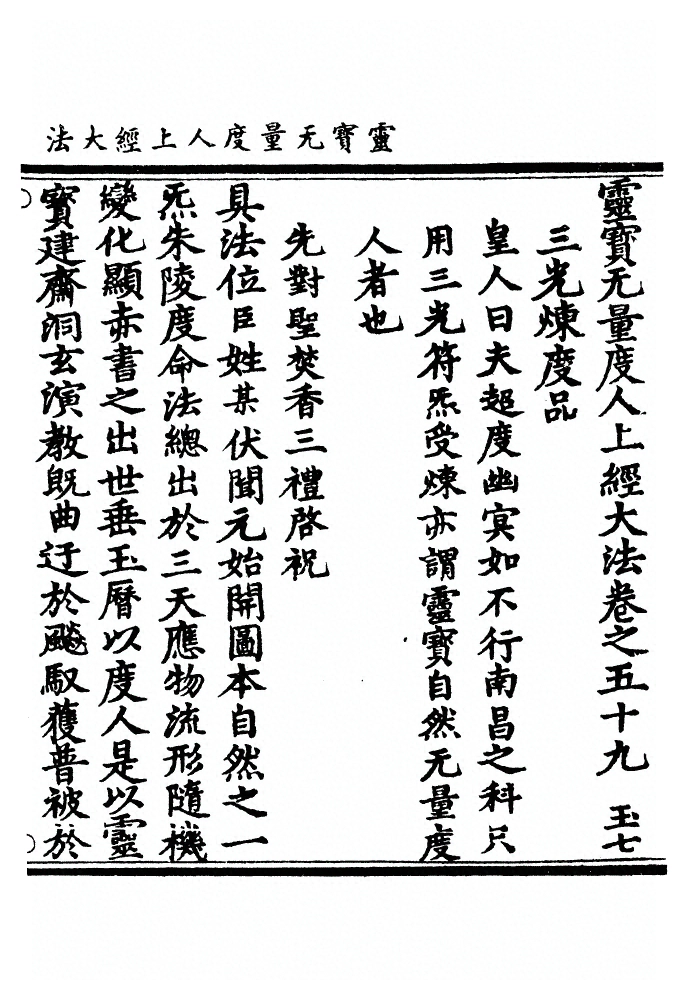 靈寳无量度人上經大法
靈寳无量度人上經大法卷之五十九　玉七
三光煉度品
皇人曰夫超度幽冥如不行南昌之科只
用三光符炁受煉亦謂靈寳自然无量度
人者也
先對聖焚香三禮啓祝
具法位臣姓某伏聞元始開圖本自然之一
炁朱陵度命法總出於三天應物流形隨機
變化顯赤書之出世垂玉曆以度人是以靈
寳建齋洞玄演教既曲迂於飈馭獲普被於